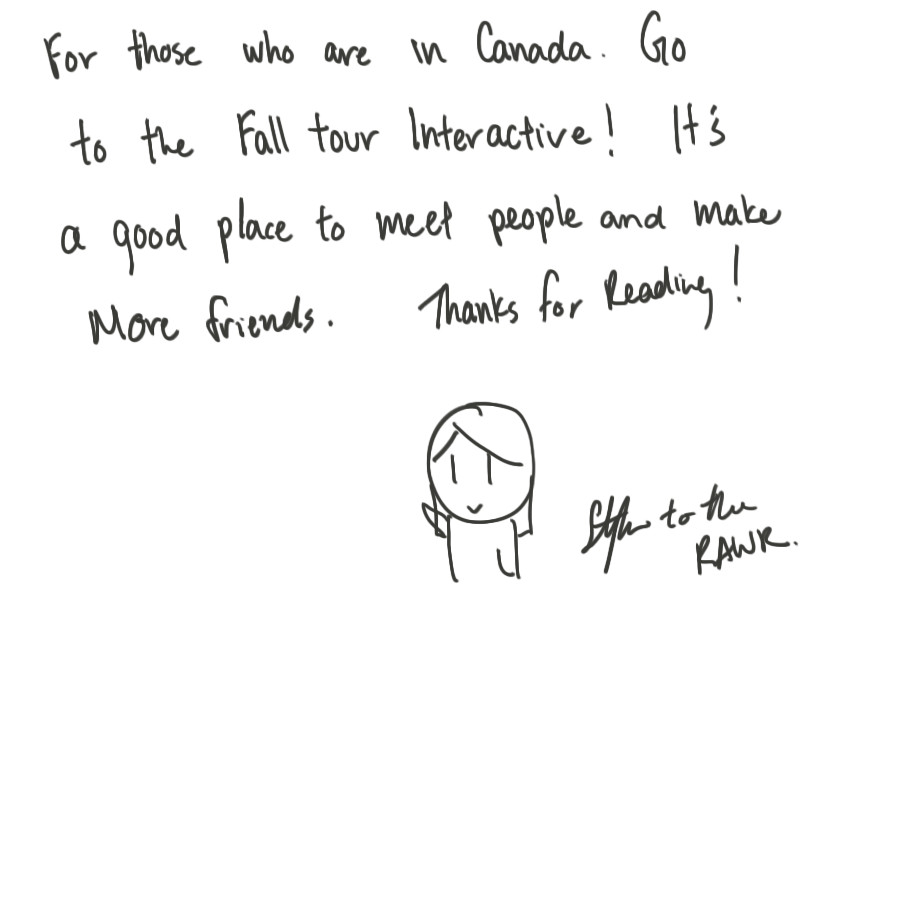 For those who are in Canada. Go
to the Fall tour Interactive! It's
a good place to meet people and make
More friends. Thanks for Reading!
to the
RAWR.